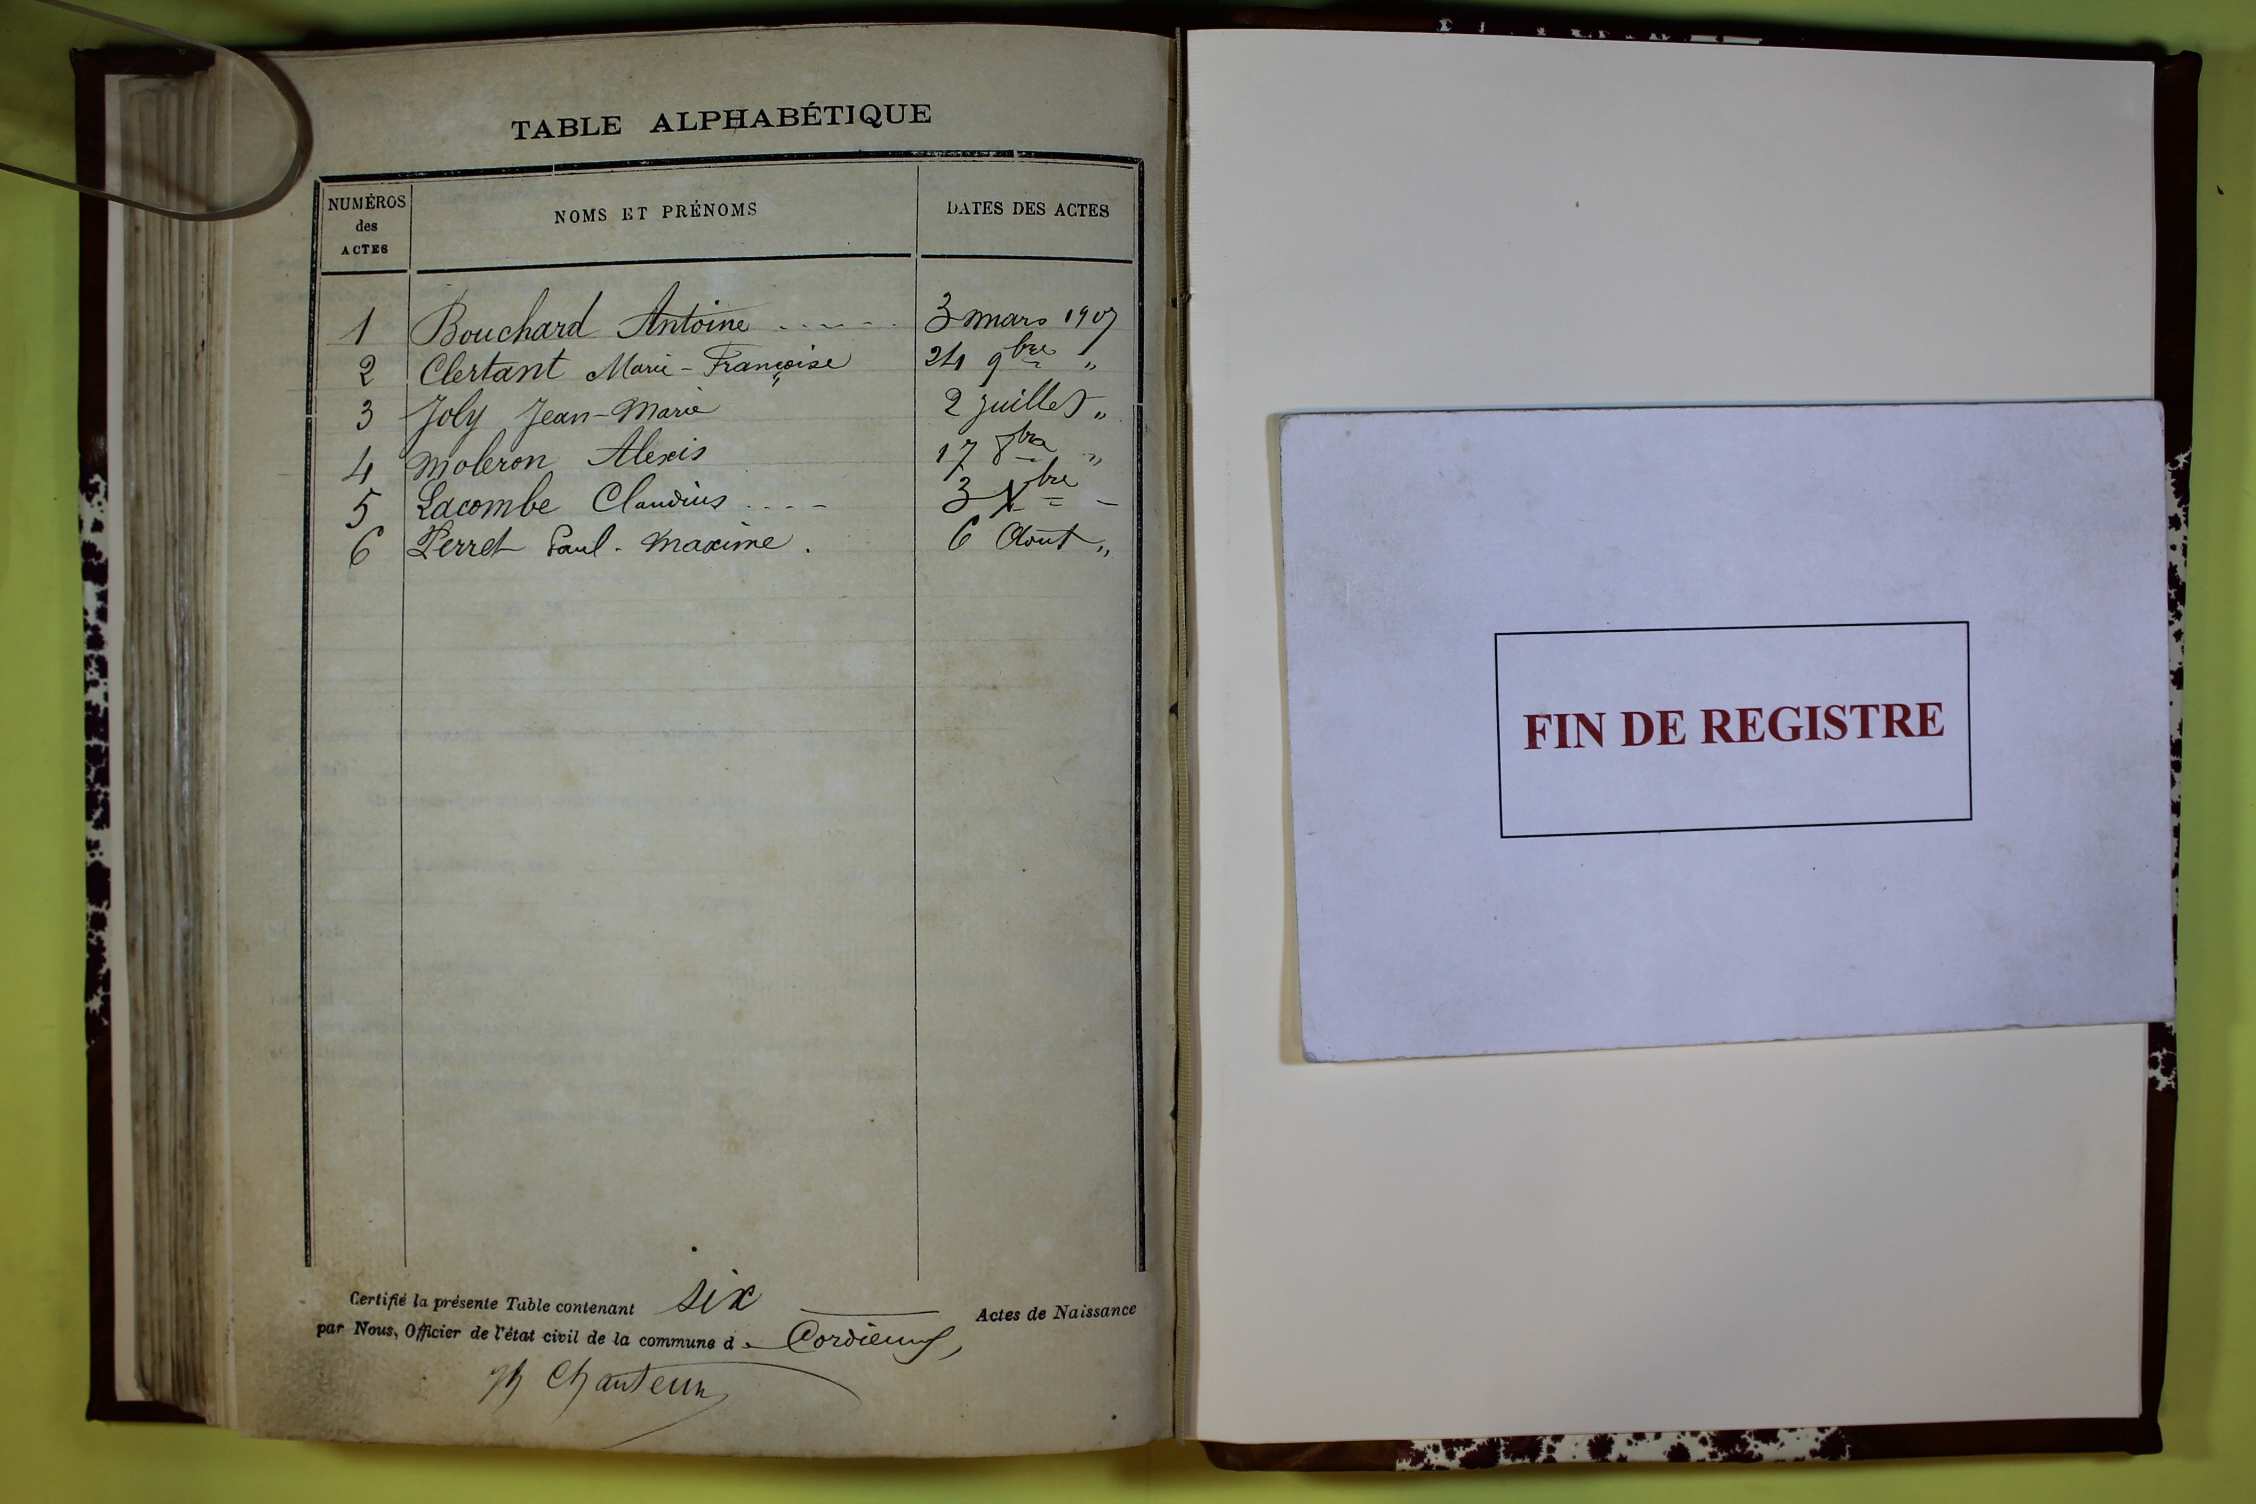 TABLE ALPHABÉTIQUE
NUMÉROS des ACTES NOMS ET PRÉNOMS DATES DES ACTES
1 Bouchard Antoine 3 mars 1907
2 Clertant Marie-Françoise 24 9bre "
3 Joly Jean-Marie 2 juillet "
4 Moleron Alexis 17 8bre "
5 Lacombe Claudius 3 Xbre -
6 Perret Paul-Maxime. 6 Août "
Certifié la présente Table contenant six Actes de Naissance
par Nous, Officier de l'état civil de la commune de Cordieux,
Chanteur
FIN DE REGISTRE